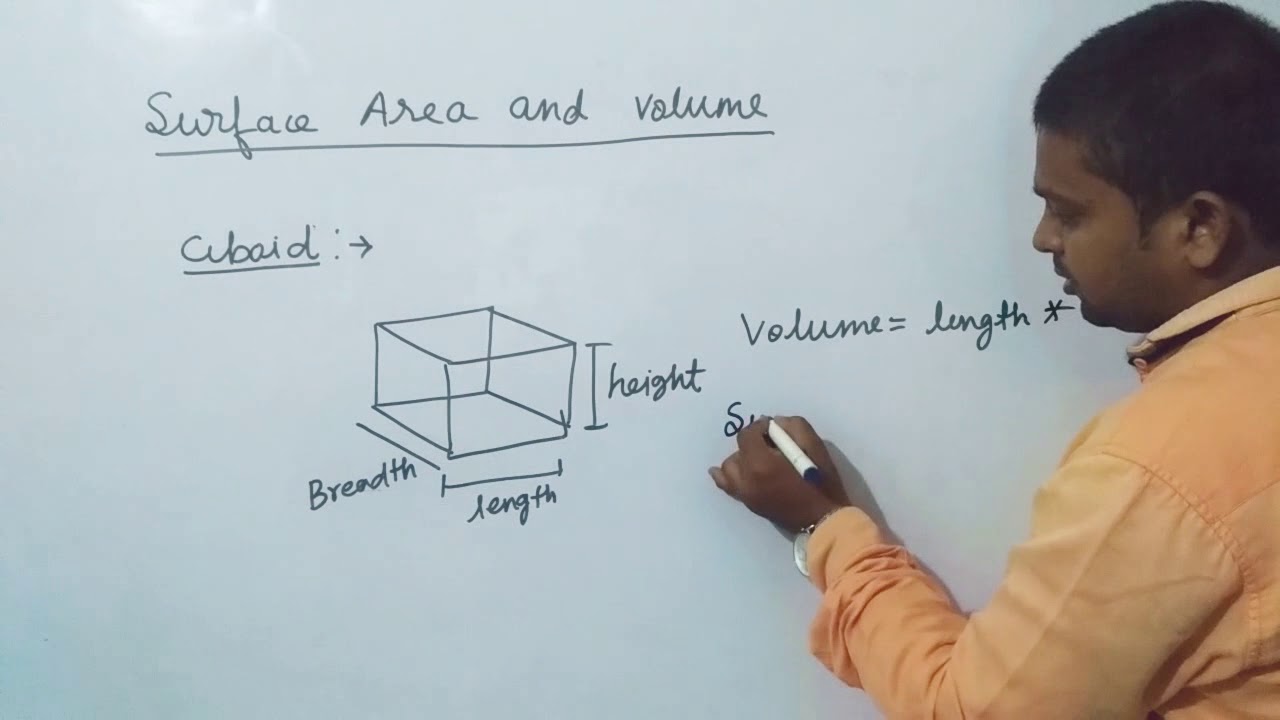 Surface Area and volume
Cuboid :→
height
Breadth
length
Volume = length *
Su